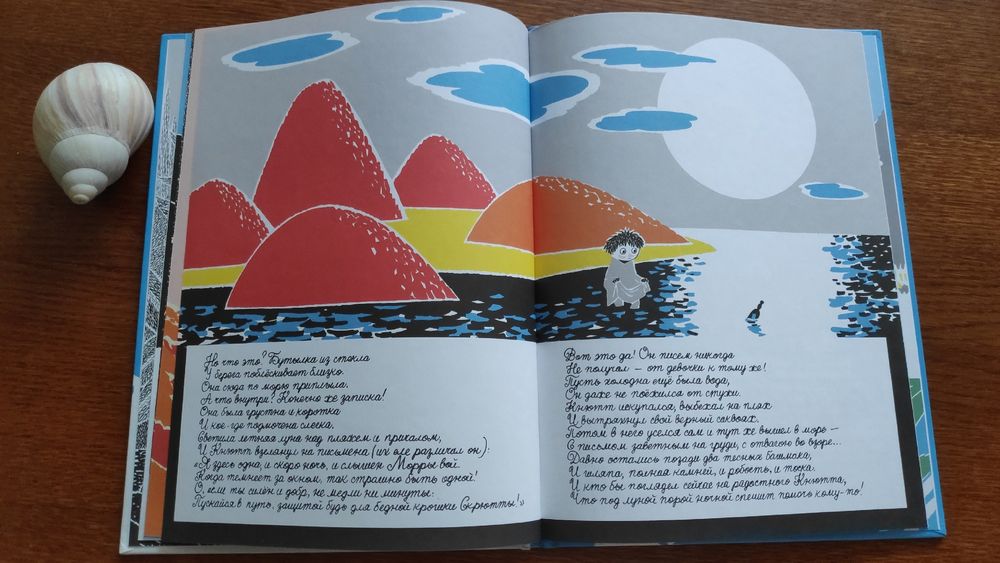 Но что это? Бутылка из стекла
У берега поблёскивает близко.
Она сюда по морю приплыла.
А что внутри? Конечно же записка!
Она была грустна и коротка
И кое-где подмочена слегка,
Светила летняя луна над пляжем и причалом,
И Кнютт взглянул на письмена (их еле различал он):
«Я здесь одна, и скоро ночь, и слышен Морры вой.
Когда темнеет за окном, так страшно быть одной!
О если ты силён и добр, не медли ни минуты:
Пускайся в путь, защитой будь для бедной крошки Скрютты!»
Вот это да! Он писем никогда
Не получал — от девочки к тому же!
Пусть холодна ещё была вода,
Он даже не поёжился от стужи.
Кнютт искупался, выбежал на пляж
И вытряхнул свой верный саквояж.
Потом в него уселся сам и тут же вышел в море —
С письмом заветным на груди, с отвагою во взоре...
Давно остались позади два тесных башмака,
И шляпа, полная камней, и робость, и тоска.
И кто бы поглядел сейчас на радостного Кнютта,
Что под луной порой ночной спешит помочь кому-то!